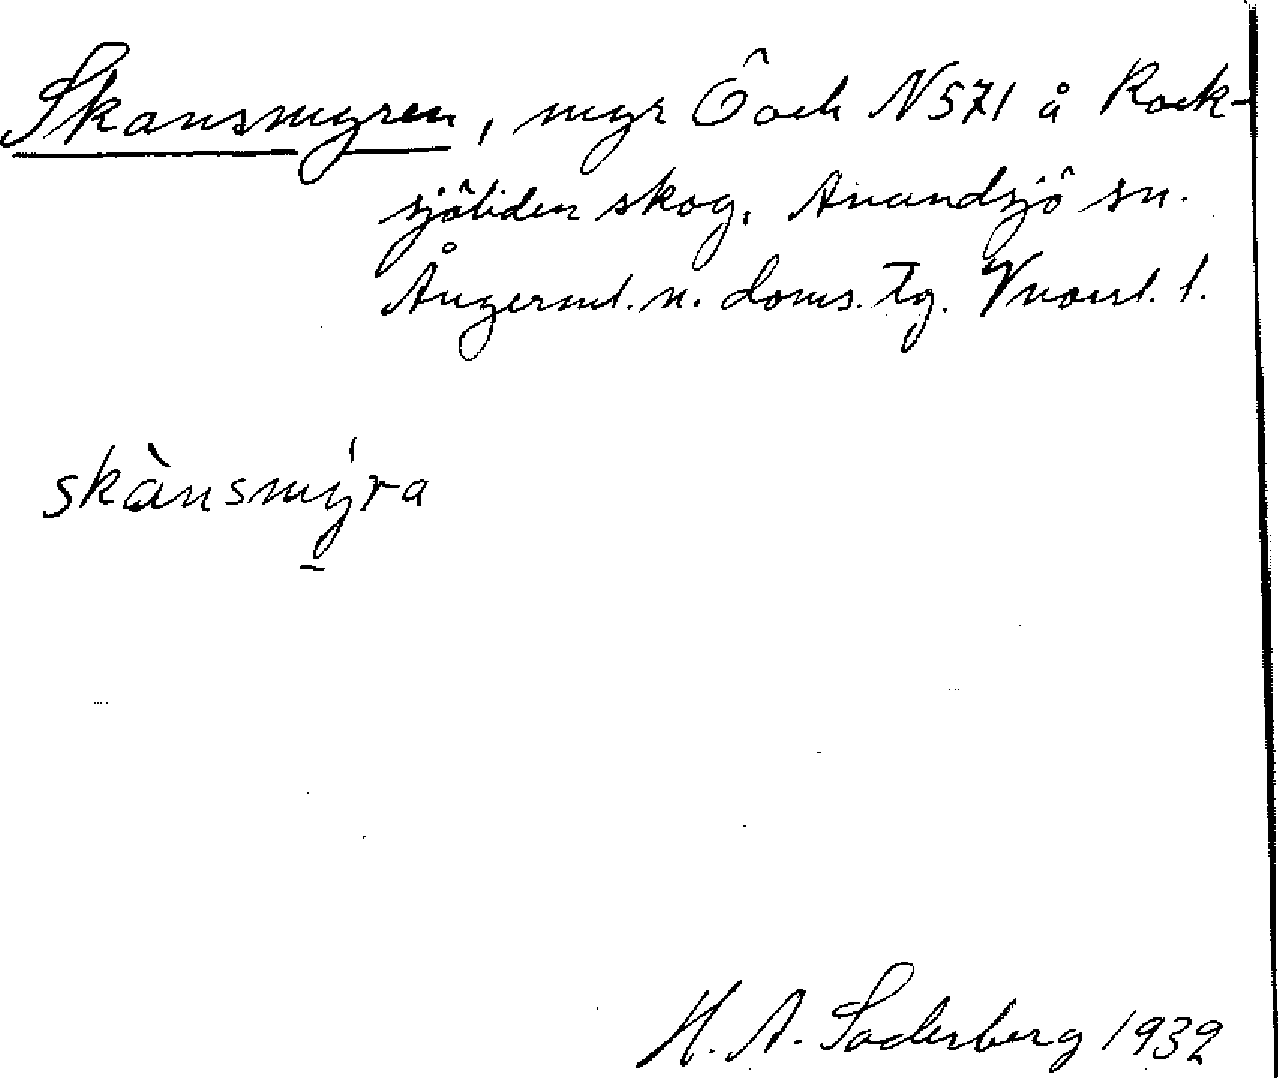 Skansmyren, myr Ö och N 571 å Rock-
sjöliden skog, Anundsjö sn.
Ångerml. n. doms. tg. Vnorrl. l.
skànsmýra
H. A. Söderberg 1932